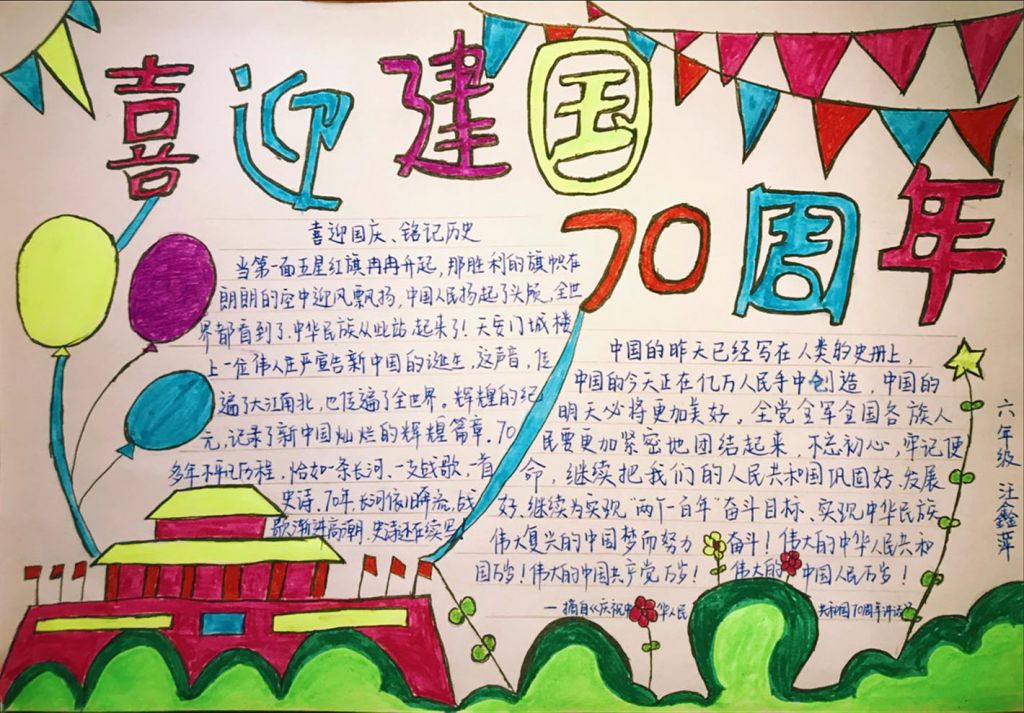 喜迎建国
70周年
喜迎国庆、铭记历史
当第一面五星红旗冉冉升起,那胜利的旗帜在
朗朗的空中迎风飘扬,中国人民扬起了头颅,全世
界都看到了.中华民族从此站起来了!天安门城楼
上一位伟人庄严宣告新中国的诞生,这声音,传
遍了大江南北,也传遍了全世界。辉煌的纪
元,记录了新中国灿烂的辉煌篇章.70
多年不平凡历程,恰如一条长河、一支战歌、一首
史诗.70年,长河依旧奔流,战
歌渐进高潮,史诗还在续写!
中国的昨天已经写在人类的史册上,
中国的今天正在亿万人民手中创造,中国的
明天必将更加美好。全党全军全国各族人
民要更加紧密地团结起来,不忘初心,牢记使
命,继续把我们的人民共和国巩固好、发展
好,继续为实现"两个一百年"奋斗目标、实现中华民族
伟大复兴的中国梦而努力奋斗!伟大的中华人民共和
国万岁!伟大的中国共产党万岁!伟大的中国人民万岁!
—摘自《庆祝中华人民共和国70周年讲话》
六年级 汪鑫萍